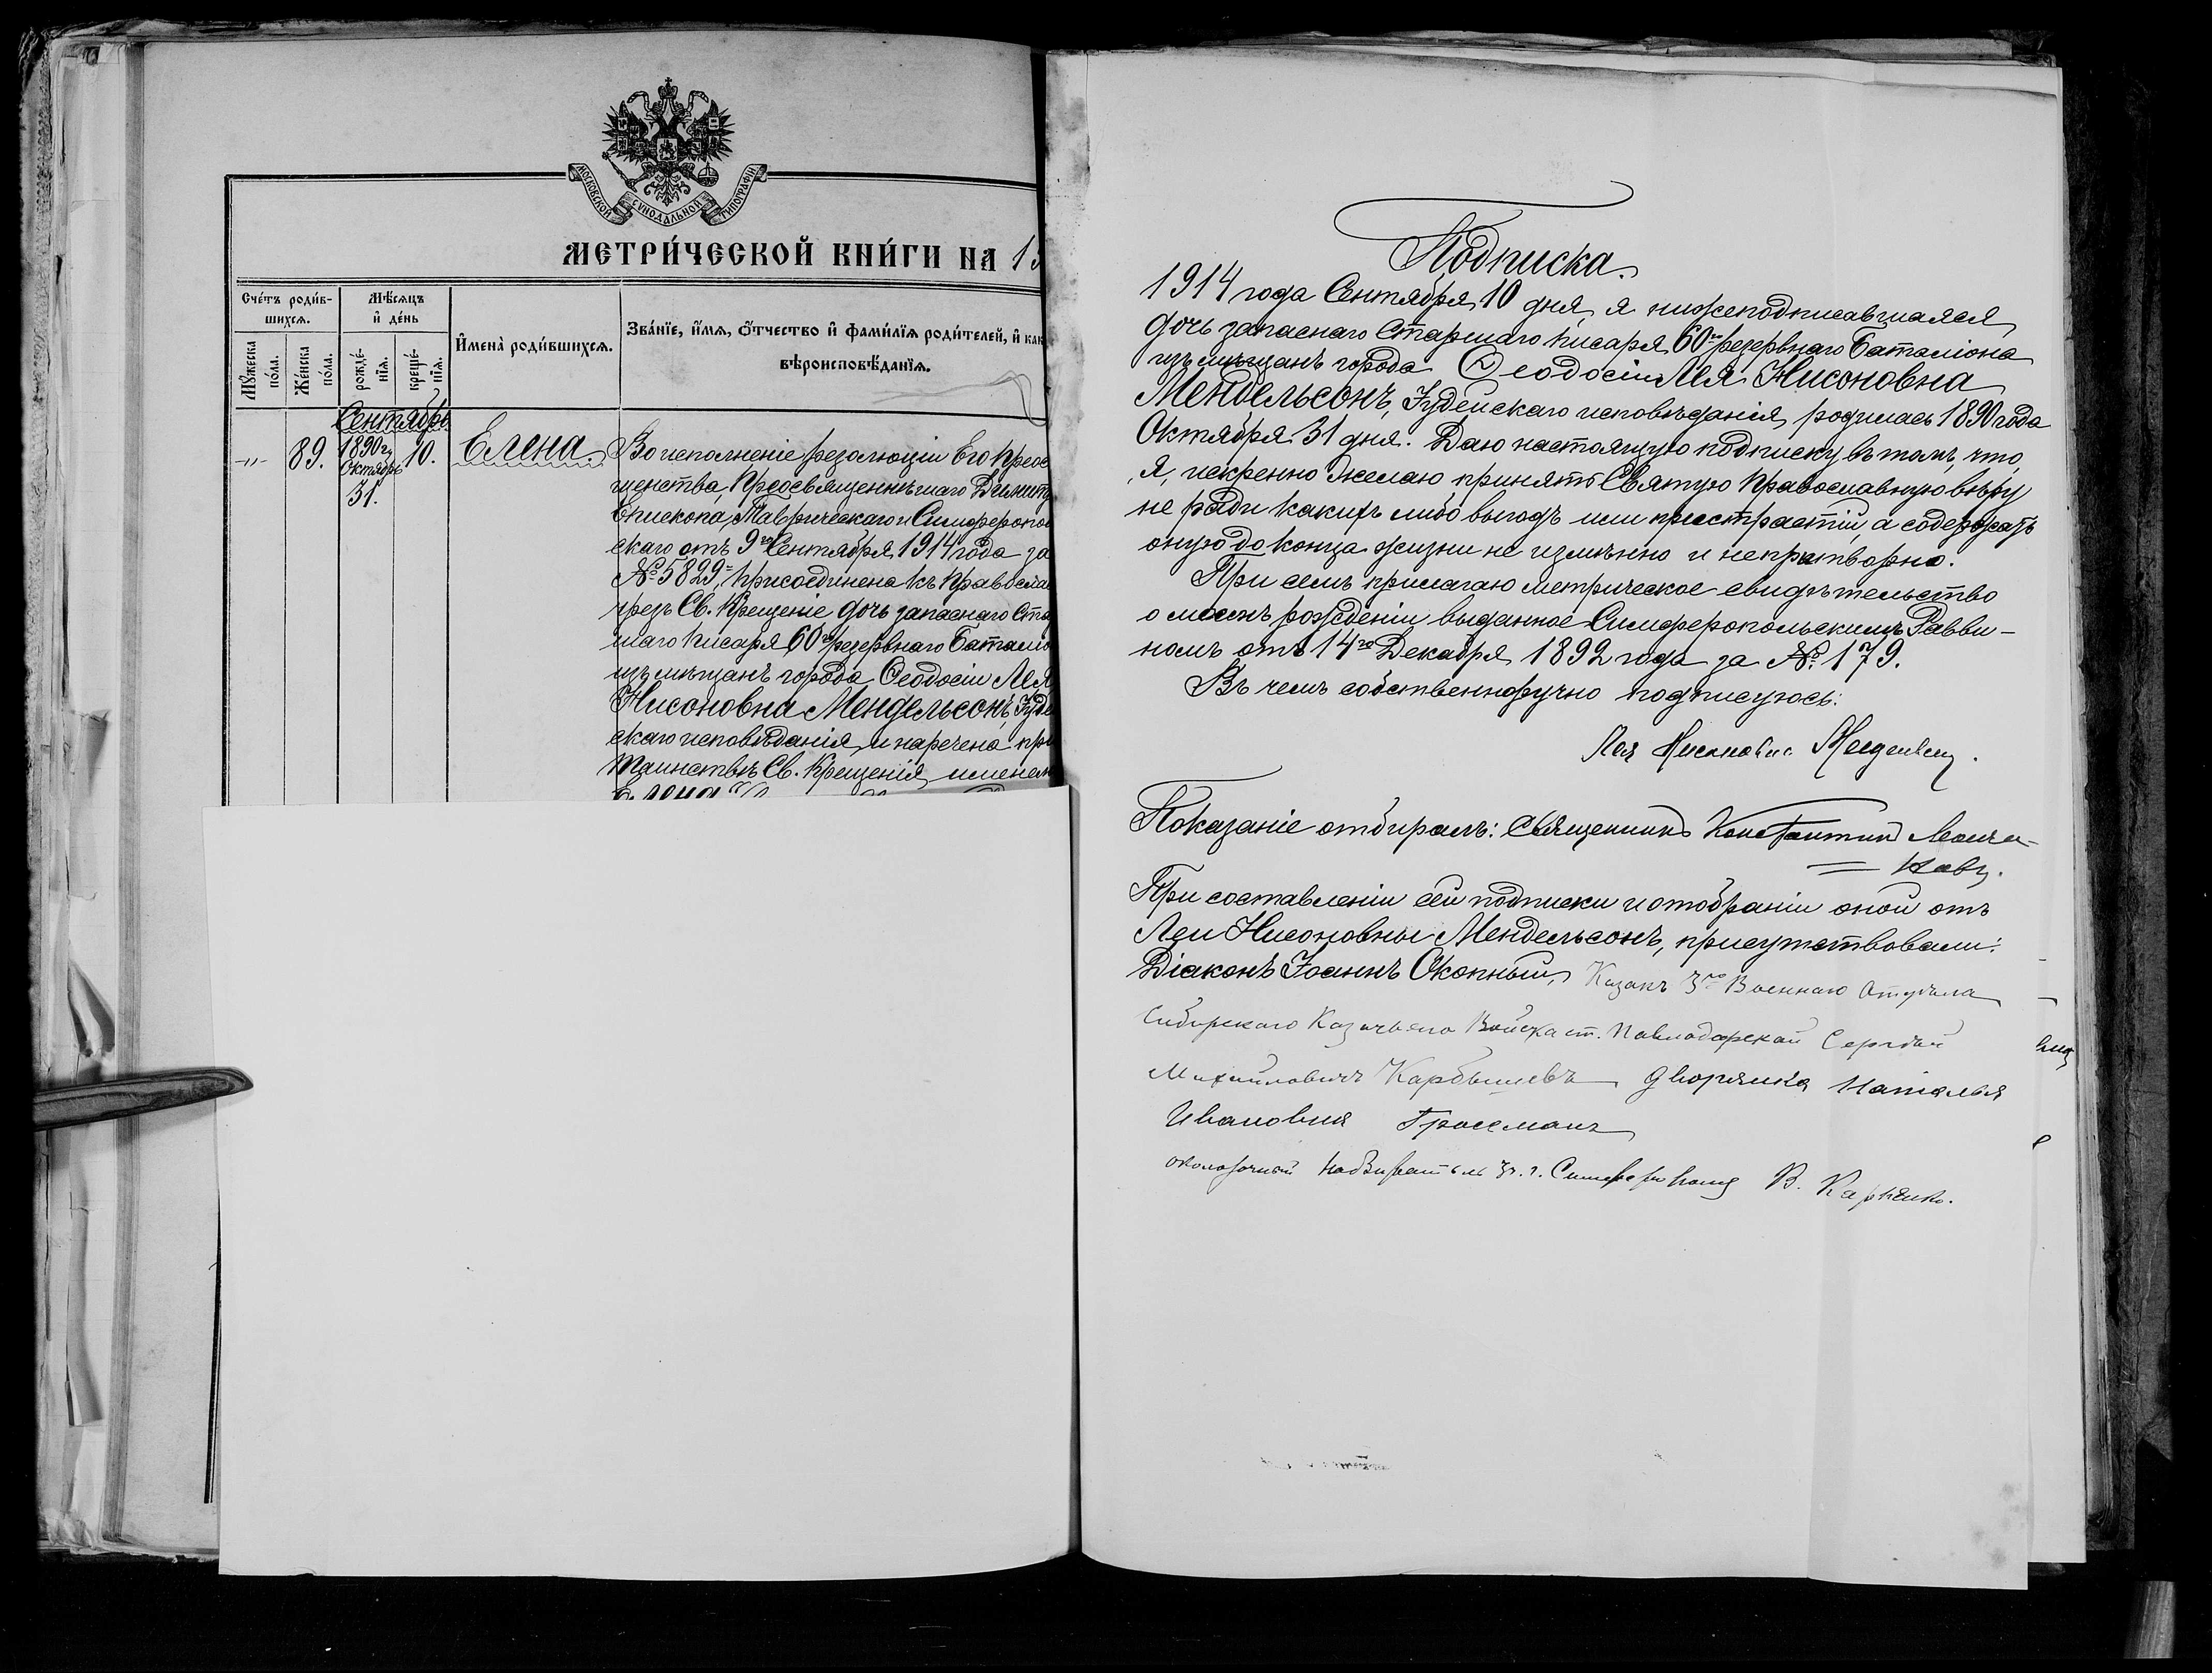 МОСКОВСКОЙ СѴНОДАЛЬНОЙ ТИПОГРАФІИ
МЕТРИ́ЧЕСКОЙ КНИ́ГИ НА 19
Сче́тъ роди́в-
шихсѧ.
Мѣ́сѧцъ
и҆ де́нь
И҆мена̀ роди́вшихсѧ.
Зва́нїе, и҆́мѧ, ѻ҆́тчество и҆ фами́лїѧ роди́телей, и҆ как
вѣроисповѣ́данїѧ.
Мꙋ́жеска
по́ла.
Же́нска
по́ла.
рожде́-
нїѧ.
креще́-
нїѧ.
Сентябрь
-"- 89. 1890 г. Октябрь 31. 10. Елена.
Во исполненіе резолюціи Его Преос
щенства, Преосвященнѣйшаго Димит
Епископа, Таврическаго и Симферопол
скаго отъ 9го Сентября 1914 года за
№ 5829, присоединена къ Православ
чрезъ Св. Крещеніе дочь запаснаго Ста
шаго писаря 60го резервнаго Баталіо
изъ мѣщанъ города Ѳеодосіи Лея
Нисоновна Мендельсонъ, Іуде
скаго исповѣданія, и наречена при
Таинствѣ Св. Крещенія, именем
Елена
Подписка.
1914 года Сентября 10 дня, я нижеподписавшаяся,
дочь запаснаго Старшаго писаря 60го резервнаго Баталіона
изъ мѣщанъ города Ѳеодосіи Лея Нисоновна
Мендельсонъ, Іудейскаго исповѣданія, родилась 1890 года
Октября 31 дня. Даю настоящую подписку въ томъ, что,
я, искренно желаю принять Святую Православную вѣру
не ради какихъ либо выгодъ или пристрастій, а содержать
оную до конца жизни не измѣнно и непритворно.
При семъ прилагаю метрическое свидѣтельство
о моемъ рожденіи выданное Симферопольскимъ Равви-
номъ отъ 14го Декабря 1892 года за № 179.
Въ чемъ собственноручно подписуюсь:
Лея Нисоновна Мендельсонъ.
Показаніе отбиралъ: Священникъ Константинъ
При составленіи сей подписки и отобраніи оной отъ
Леи Нисоновны Мендельсонъ, присутствовали:
Діаконъ Іоаннъ Окопный, Казакъ 3го Военнаго Отдѣла
Сибирскаго Казачьяго Войска ст. Павлодарской Сергѣй
Михайловичъ Карбышевъ дворянка Наталья
Ивановна Гроссманъ
околоточный надзиратель г. Симферополя В. Карпенко.